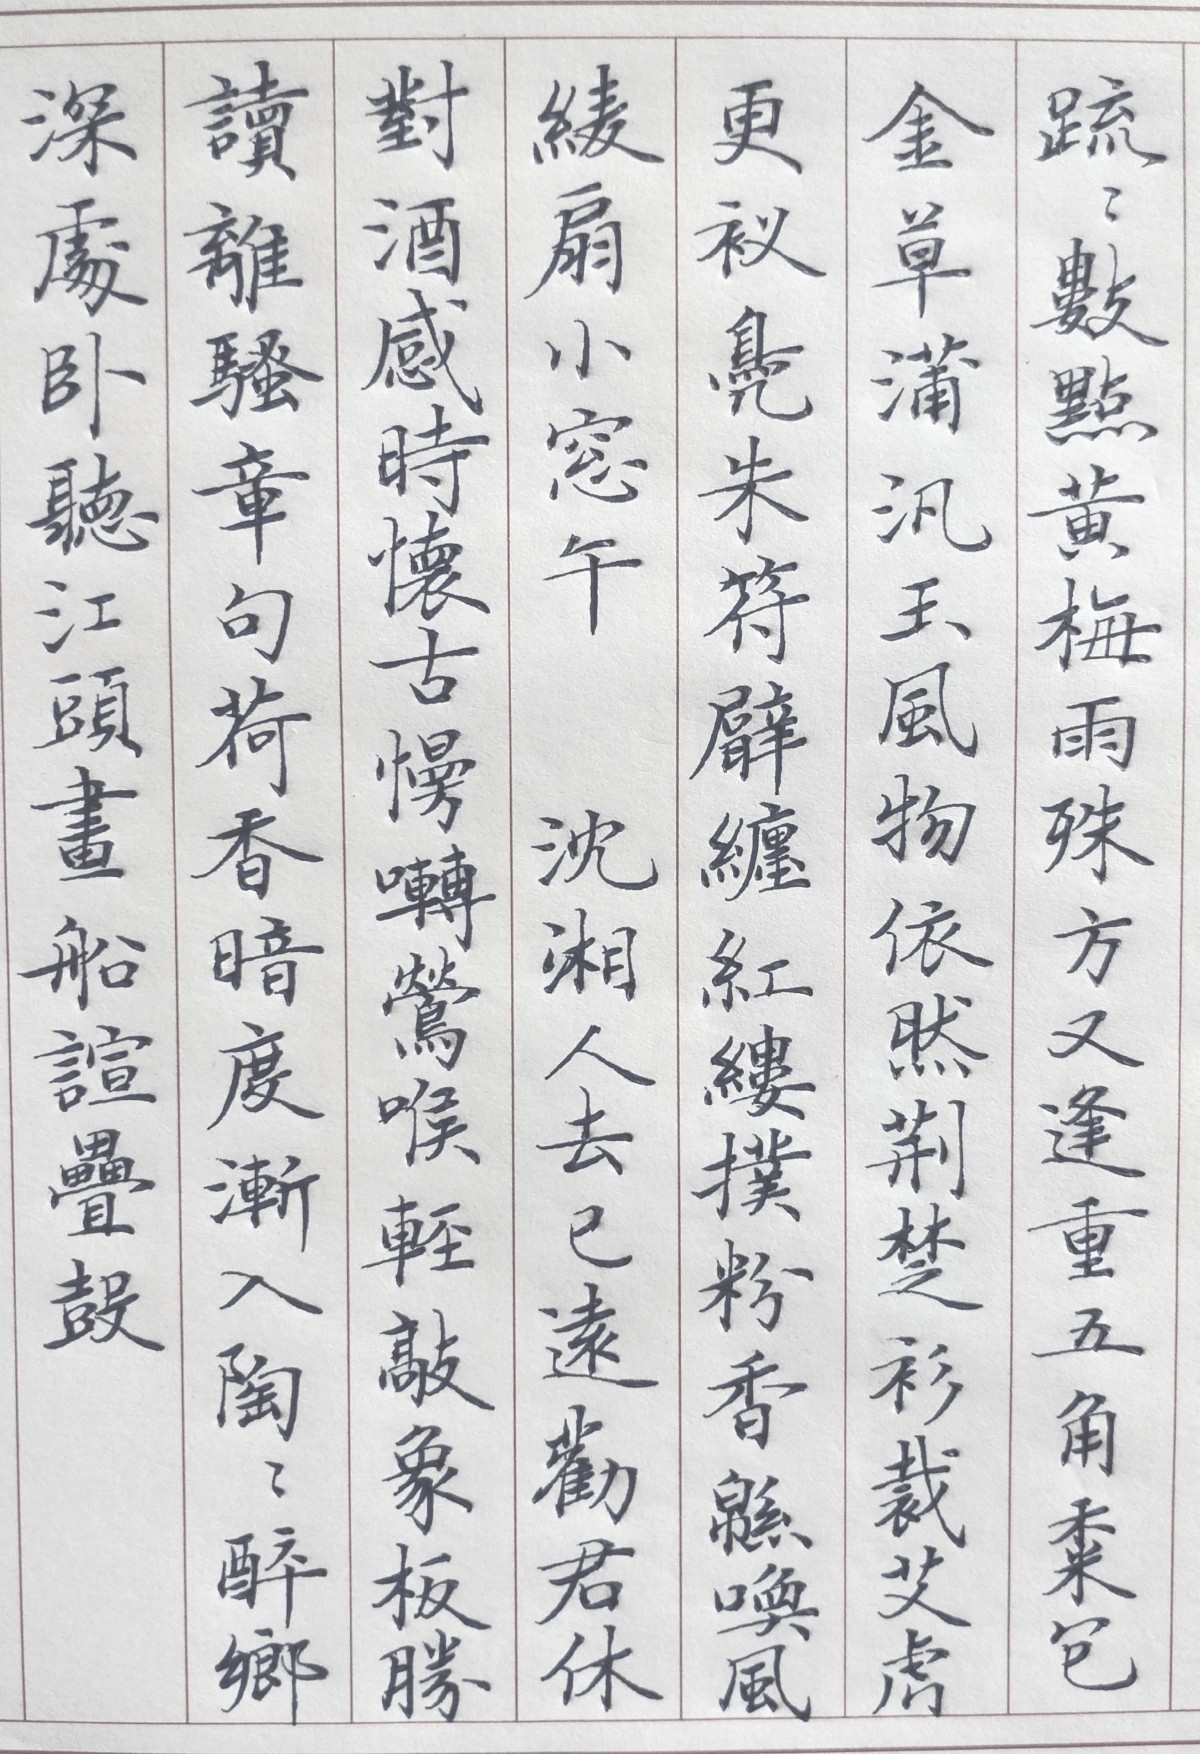 疏〻數點黃梅雨殊方又逢重五角黍包
金草蒲汎玉風物依然荆楚衫裁艾虎
更釵裊朱符臂纏紅縷撲粉香緜喚風
綾扇小窓午　沈湘人去已遠勸君休
對酒感時懷古慢囀鶯喉輕敲象板勝
讀離騷章句荷香暗度漸入陶〻醉鄉
深處卧聽江頭畫船諠疊鼓